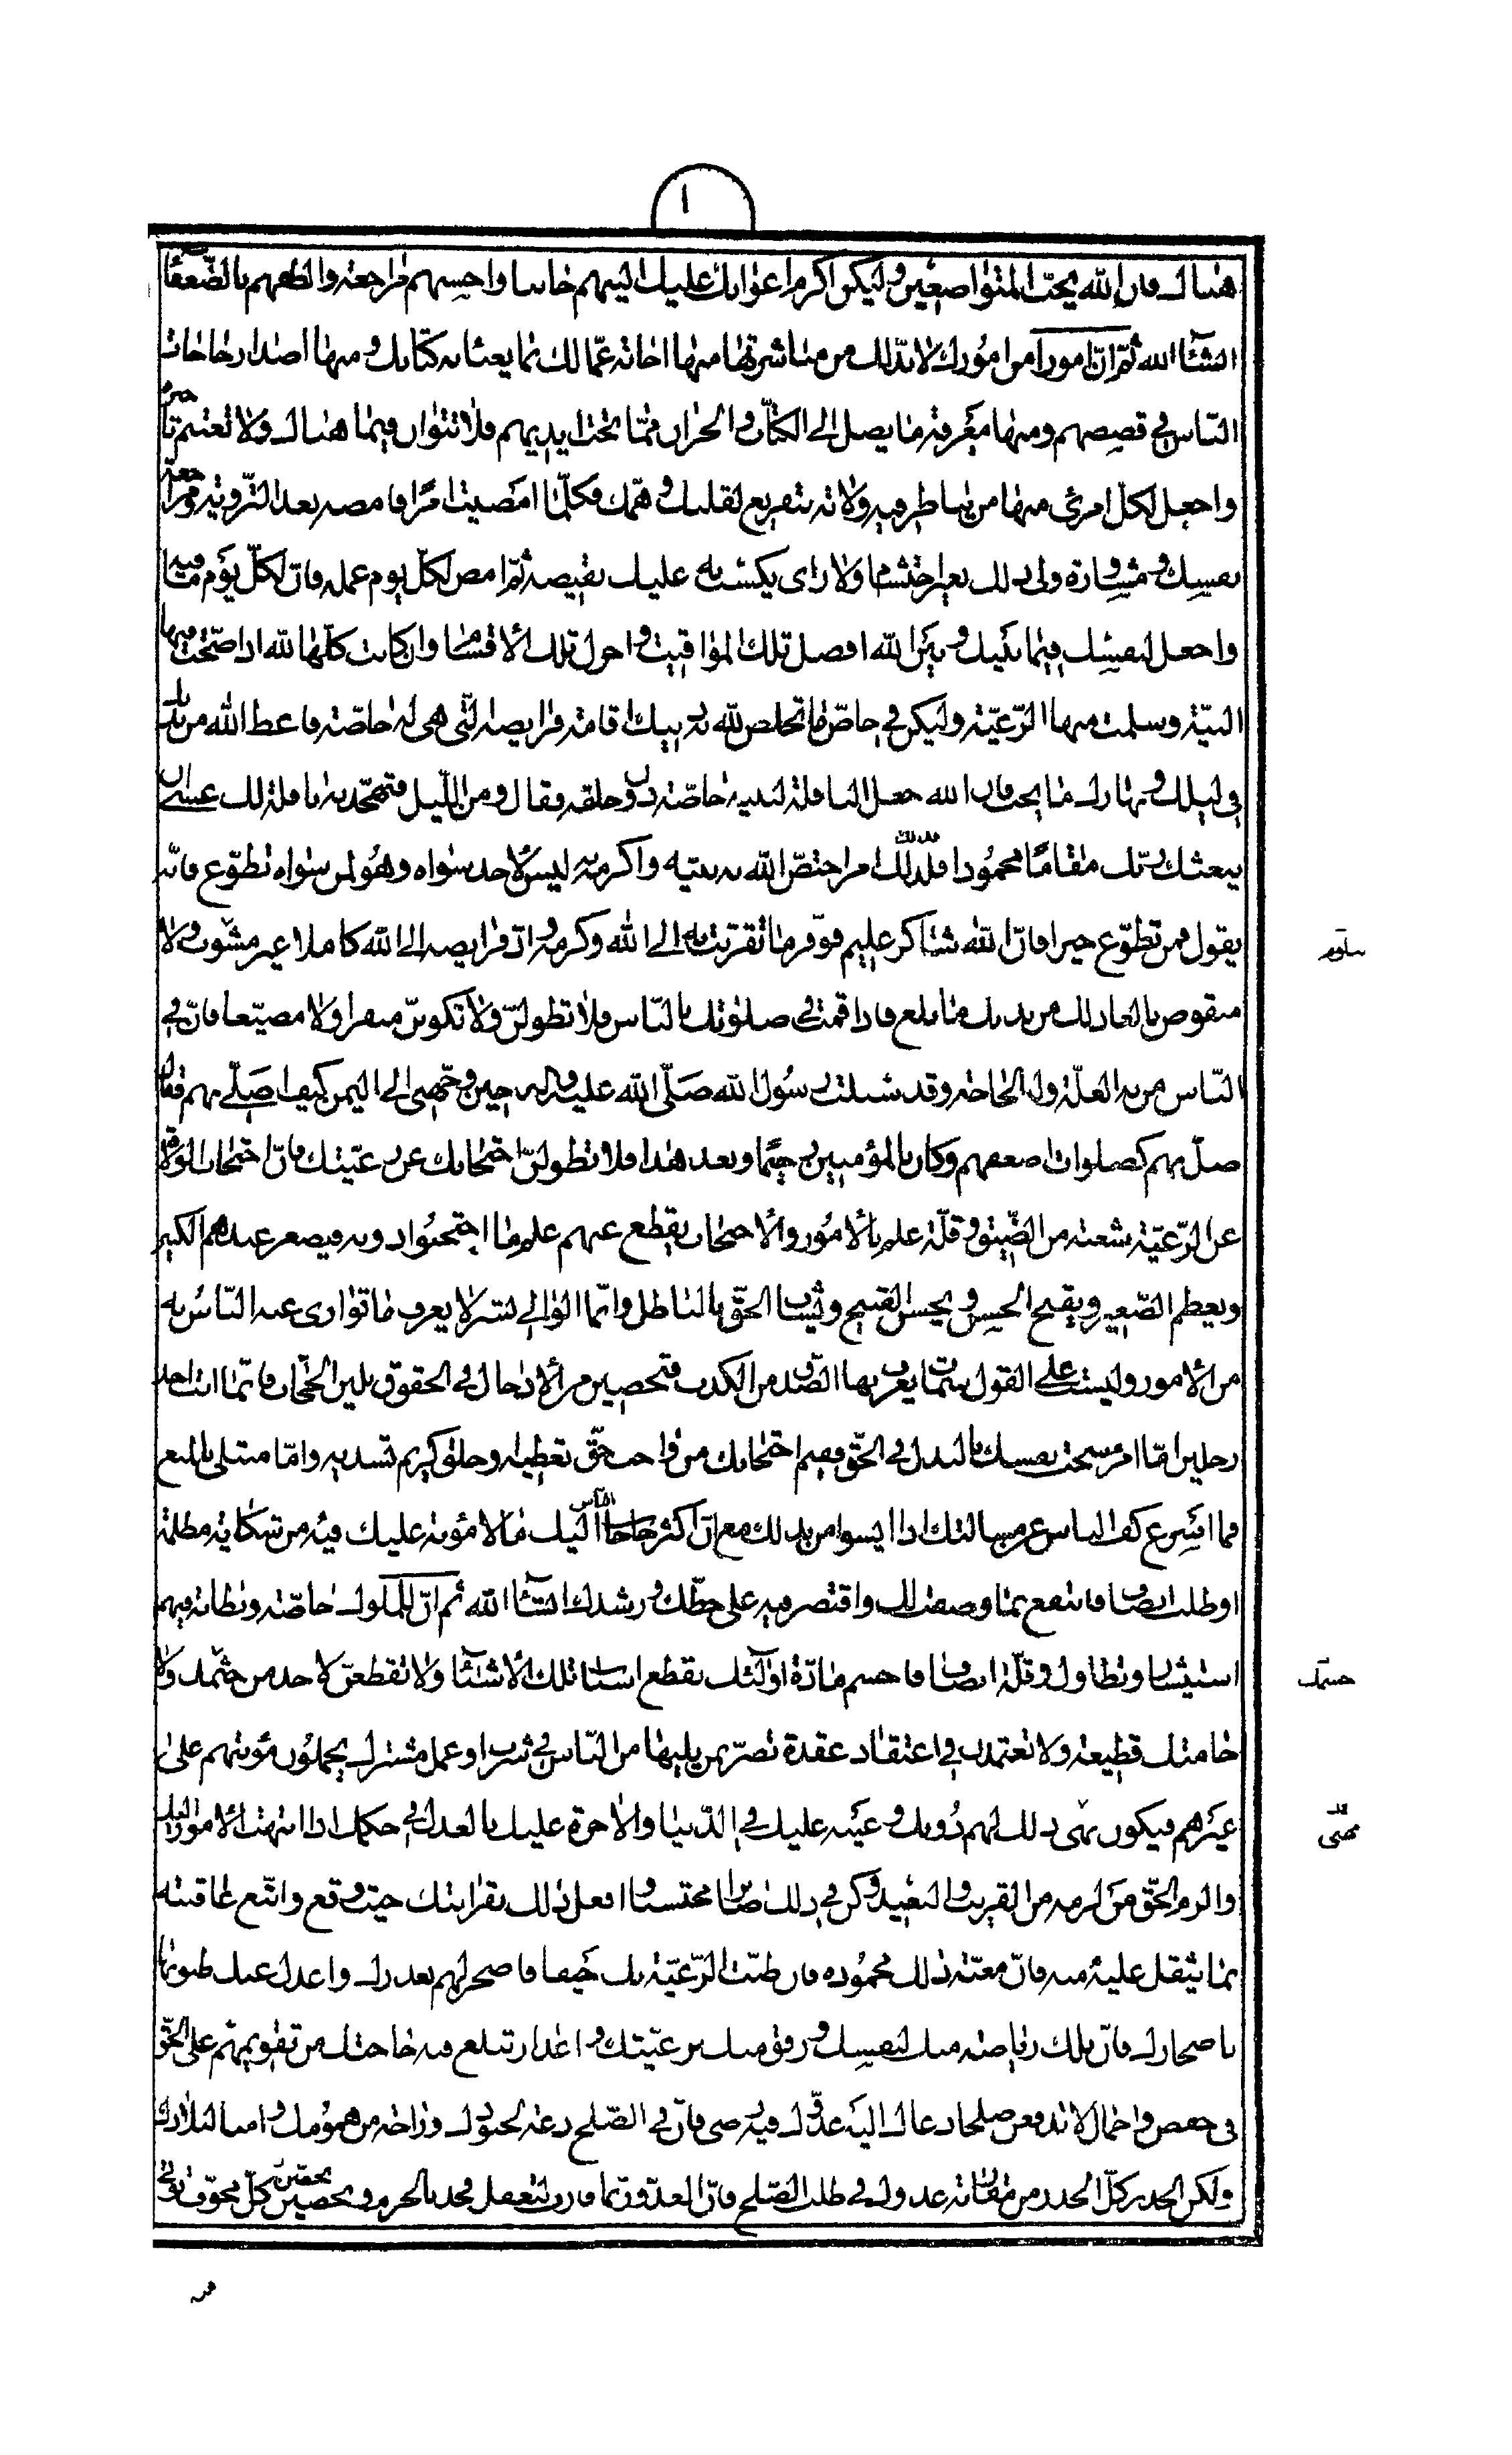 ١
هنالك فان الله يحب المتواضعين وليكن اكرم اعوانك عليك الينهم جانبا واحسنهم مراجعة والطفهم بالضعفآء
انشآء الله ثم ان امورا من امورك لا بد لك من مباشرتها منها اجابة عمالك ما يعيا عنه كتابك ومنها اصدار حاجات
الناس في قصصهم ومنها معرفة ما يصل الى الكتاب والخزان مما تحت ايديهم فلا تتوان فيما هنالك ولا تغتنم تاخيره
واجعل لكل امرئ منها من يناظر فيه ولاته بتفريغ لقلبك وهمك فكلما امضيت امرا فامضه بعد التروية ومراجعة
نفسك ومشاورة ولي ذلك بغير احتشام ولا راى يكسب به عليك نقيصة ثم امض لكل يوم عمله فان لكل يوم ما فيه
واجعل لنفسك فيما بينك وبين الله افضل تلك المواقيت واجزل تلك الاقسام وان كانت كلها لله اذا صحت فيها
النية وسلمت منها الرعية وليكن في خاص ما تخلص لله به دينك اقامة فرايضه التي هي له خاصة فاعط الله من بدنك
في ليلك ونهارك ما يجب فان الله جعل النافلة لنبيه خاصة دون خلقه فقال ومن الليل فتهجد به نافلة لك عسى ان
يبعثك ربك مقاما محمودا فذلك امر اختص الله به نبيه واكرمه به ليس لاحد سواه وهو لمن سواه تطوع فانه
يقول فمن تطوع خيرا فان الله شاكر عليم فوفر ما تقربت به الى الله وكرمه واد فرايضه الى الله كاملا غير مثوب ولا
منقوص بالغا ذلك من بدنك ما بلغ فاذا قمت في صلوتك بالناس فلا تطولن ولا تكونن منفرا ولا مضيعا فان في
الناس من به العلة وله الحاجة وقد سئلت رسول الله صلى الله عليه واله حين وجهني الى اليمن كيف اصلي بهم فقال
صل بهم كصلوة اضعفهم وكن بالمؤمنين رحيما وبعد هذا فلا تطولن احتجابك عن رعيتك فان احتجاب الولاة
عن الرعية شعبة من الضيق وقلة علم بالامور والاحتجاب يقطع عنهم علم ما احتجبوا دونه فيصغر عندهم الكبير
ويعظم الصغير ويقبح الحسن ويحسن القبيح ويشاب الحق بالباطل وانما الوالي بشر لا يعرف ما توارى عنه الناس به
من الامور وليست على القول سمات يعرف بها الصدق من الكذب فتحصن من الادخال في الحقوق بلين الحجاب فانما انت احد
رجلين اما امرؤ سخت نفسك بالبذل في الحق ففيم احتجابك من واجب حق تعطيه وخلق كريم تسديه واما مبتلى بالمنع
فما اسرع كف الناس عن مسالتك اذا ايسوا من بذلك مع ان اكثر حاجات الناس اليك ما لا مؤنة عليك فيه من شكاية مظلمة
او طلب انصاف فانتفع بما وصفت لك واقتصر فيه على حظك ورشدك انشآء الله ثم ان للملوك خاصة وبطانة فيهم
استيثار وتطاول وقلة انصاف فاحسم مادة اولئك بقطع اسباب تلك الاشياء ولا تقطعن لاحد من حشمك ولا
حامتك قطيعة ولا تعتمدن في اعتقاد عقدة تضر بمن يليها من الناس في شرب او عمل مشترك يحملون مؤنتهم على
غيرهم فيكون مهنى ذلك لهم دونك وعيبه عليك في الدنيا والاخرة عليك بالعدل في حكمك اذا انتهت الامور اليك
والزم الحق من لزمه من القريب والبعيد وكن في ذلك صابرا محتسبا وافعل ذلك بقرابتك حيث وقع وابتغ عاقبته
بما يثقل عليه منه فان مغبة ذلك محمودة فان ظنت الرعية بك حيفا فاصحر لهم بعذرك واعدل عنك ظنونها
باصحارك فان تلك رياضة منك لنفسك ورفق منك برعيتك واعذار تبلغ فيه حاجتك من تقويمهم على الحق
في خفض واجمال لا تدفعن صلحا دعاك اليه عدوك فيه رضى فان في الصلح دعة لجنودك وراحة من همومك وامنا لبلادك
ولكن الحذر كل الحذر من مقاربة عدوك في طلب الصلح فان العدو ربما قارب ليتغفل فخذ بالحزم وتحصين كل مخوف تؤتى
منه